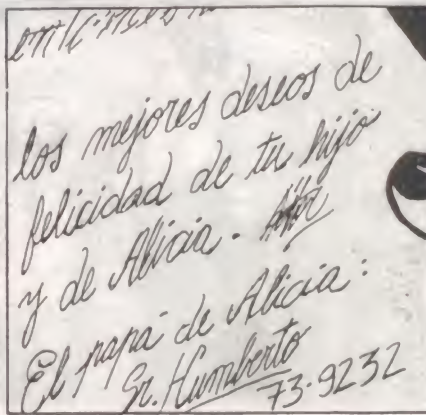 los mejores deseos de
felicidad de tu hijo
y de Alicia.
El papá de Alicia:
Sr. Humberto
73-9232